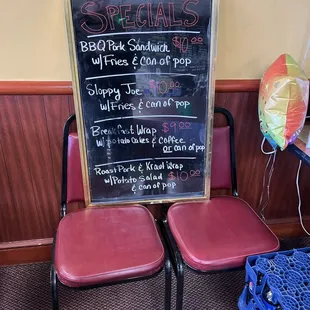 SPECIALS
BBQ Pork Sandwich $10.00
w/Fries & can of pop
Sloppy Joe $10.00
w/Fries & can of pop
Breakfast Wrap $9.00
w/potato cakes & coffee
or can of pop
Roast Pork & Kraut Wrap
w/Potato Salad $10.00
& can of pop